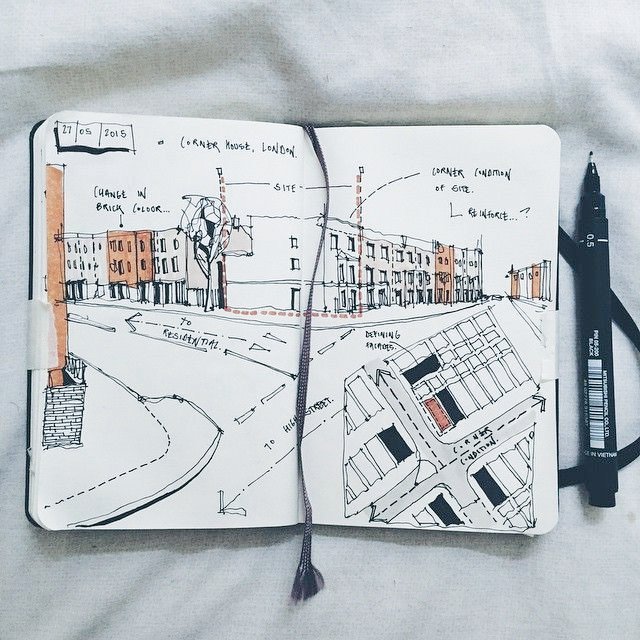 27 05 2015
CORNER HOUSE, LONDON.
CHANGE IN
BRICK COLOUR...
SITE
CORNER CONDITION
OF SITE.
REINFORCE...?
TO
RESIDENTIAL
DEFINING
FACADES.
TO HIGH STREET.
CORNER
CONDITION.
0.5
PIN 05-200
BLACK
MITSUBISHI PENCIL CO., LTD.
MADE IN VIETNAM